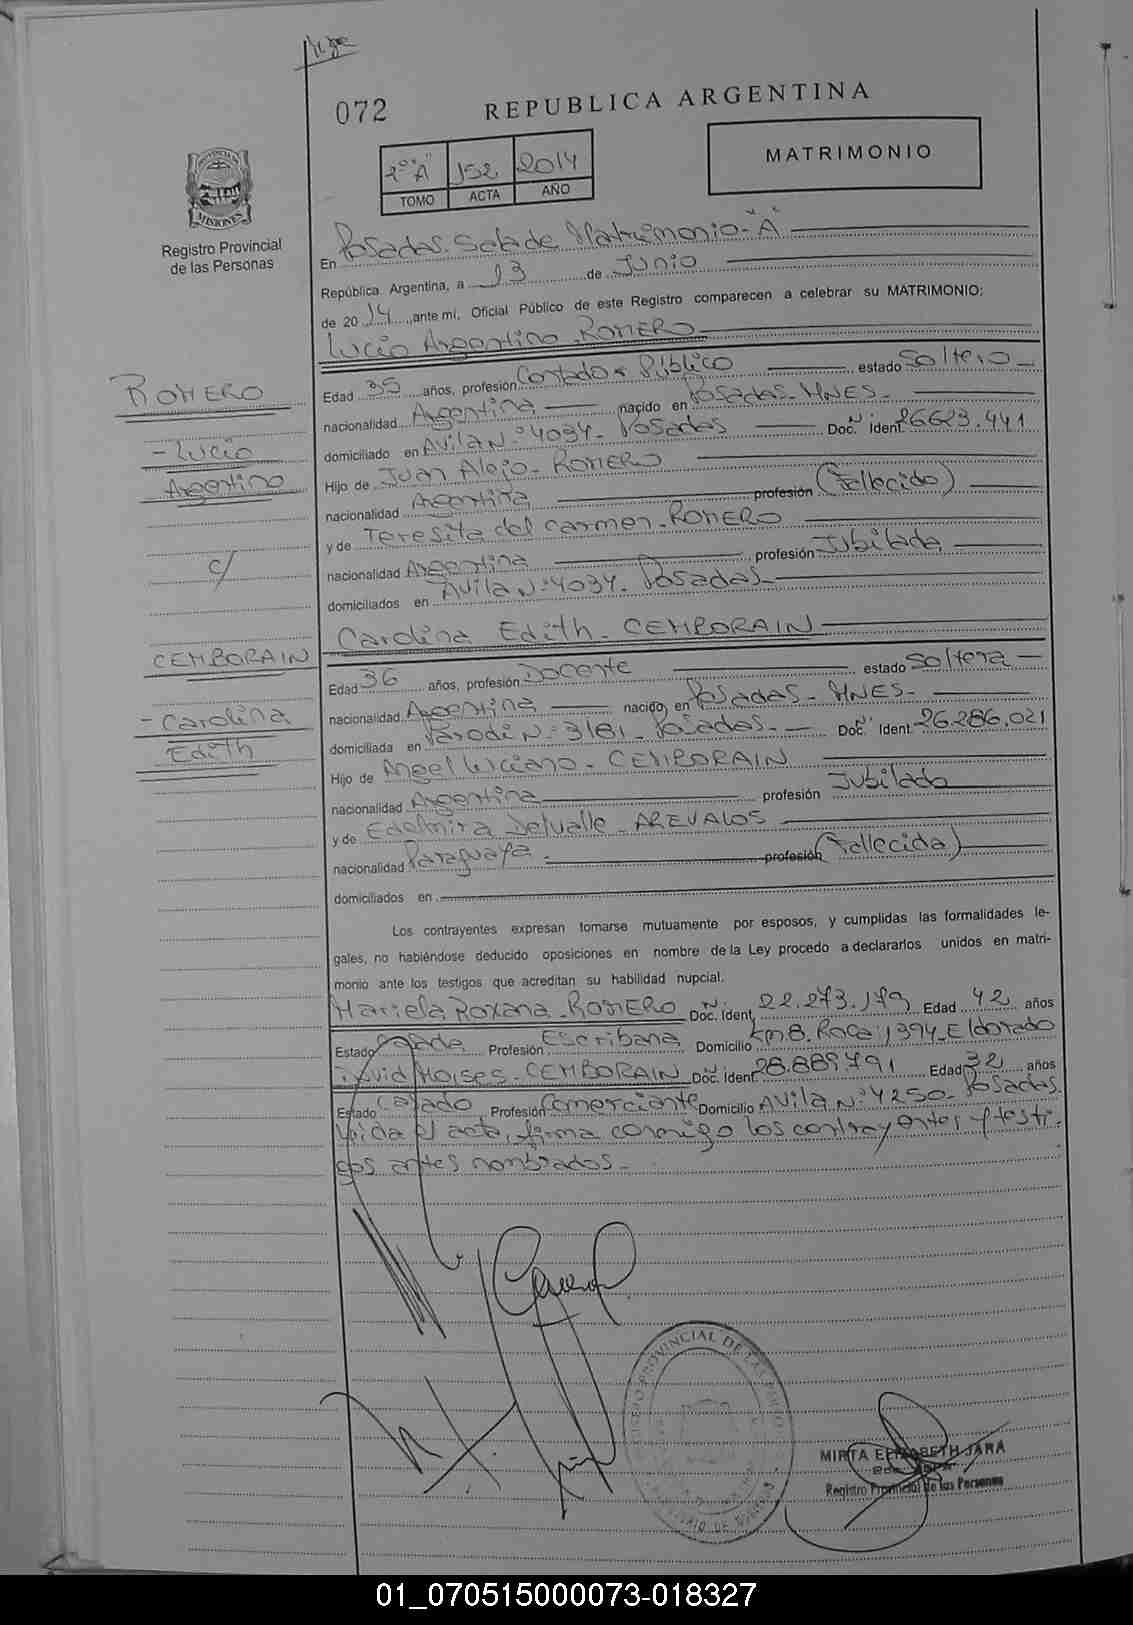 072
REPUBLICA ARGENTINA
MATRIMONIO
2º "A" 152 2014
TOMO ACTA AÑO
PROVINCIA DE
MISIONES
Registro Provincial
de las Personas
En Posadas. Sala de Matrimonio - "A"
República Argentina, a 13 de Junio
de 2014, ante mí, Oficial Público de este Registro comparecen a celebrar su MATRIMONIO:
Lucio Argentino ROMERO
Edad 35 años, profesión Contador Público estado Soltero
nacionalidad Argentina nacido en Posadas - MNES -
domiciliado en Avila Nº 4034 - Posadas Doc. Ident. Nº 26623.441
Hijo de Juan Alejo - ROMERO
nacionalidad Argentina profesión (Fallecido)
y de Teresita del Carmen - ROMERO
nacionalidad Argentina profesión Jubilada
domiciliados en Avila Nº 4034 - Posadas -
Carolina Edith - CEMBORAIN
Edad 36 años, profesión Docente estado Soltera
nacionalidad Argentina nacido en Posadas - MNES -
domiciliada en Parodi Nº 3181 - Posadas - Doc. Ident. Nº 26.286.021
Hijo de Angel Luciano - CEMBORAIN
nacionalidad Argentina profesión Jubilado
y de Edelmira Delvalle - AREVALOS
nacionalidad Paraguaya - profesión (Fallecida)
domiciliados en
Los contrayentes expresan tomarse mutuamente por esposos, y cumplidas las formalidades le-
gales, no habiéndose deducido oposiciones en nombre de la Ley procedo a declararlos unidos en matri-
monio ante los testigos que acreditan su habilidad nupcial.
Mariela Roxana - ROMERO Doc. Ident. Nº 22.273.179 Edad 42 años
Estado Casada Profesión Escribana Domicilio Km 8. Roca 1394 - Eldorado
David Moises - CEMBORAIN Doc. Ident. Nº 28.889.791 Edad 32 años
Estado Casado Profesión Comerciante Domicilio Avila Nº 4250 - Posadas
Leida el acta, firma conmigo los contrayentes y testi-
gos antes nombrados -
ROMERO
- Lucio
Argentino
c/
CEMBORAIN
- Carolina
Edith
MIRTA ELIZABETH JARA
Registro Provincial de las Personas
01_070515000073-018327